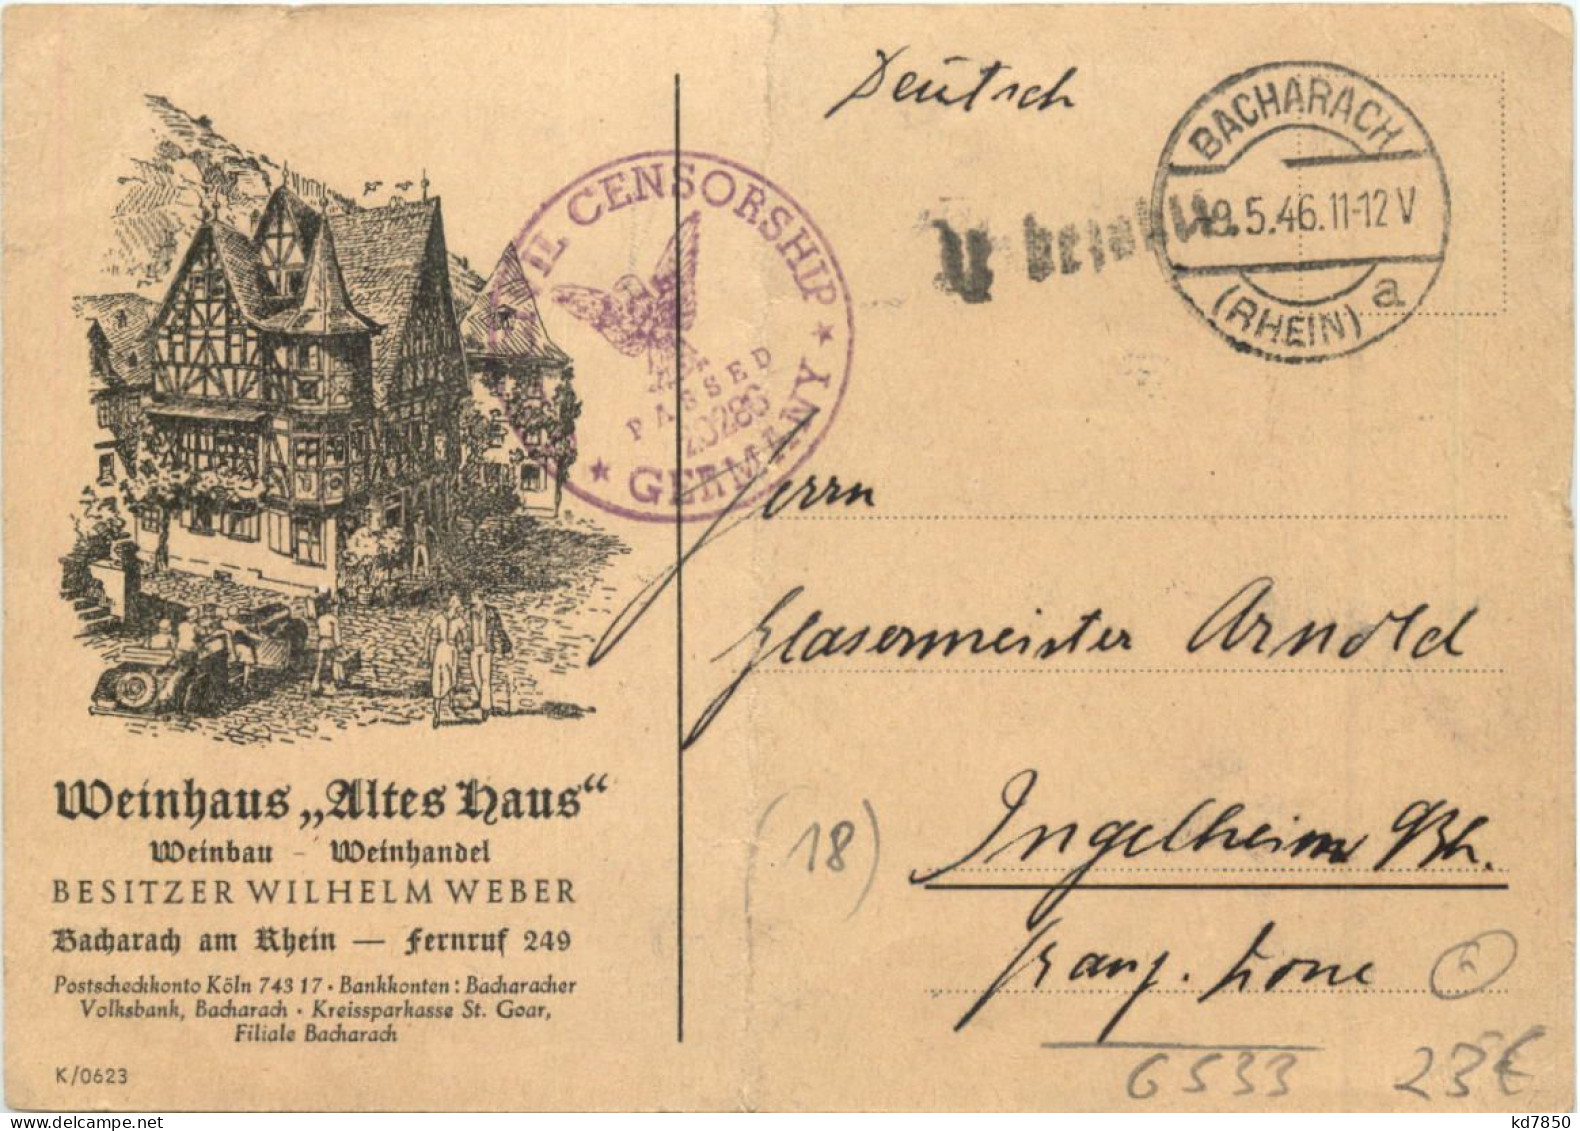 Deutsch
BACHARACH
9.5.46.11-12V
(RHEIN) a
CIVIL CENSORSHIP
PASSED
20286
★ GERMANY ★
Herrn
Glasermeister Arnold
(18)
Ingelheim Rh.
franz. Zone
Weinhaus „Altes Haus“
Weinbau - Weinhandel
BESITZER WILHELM WEBER
Bacharach am Rhein — Fernruf 249
Postscheckkonto Köln 743 17 · Bankkonten: Bacharacher
Volksbank, Bacharach · Kreissparkasse St. Goar,
Filiale Bacharach
K/0623
6533 23€
kd7850